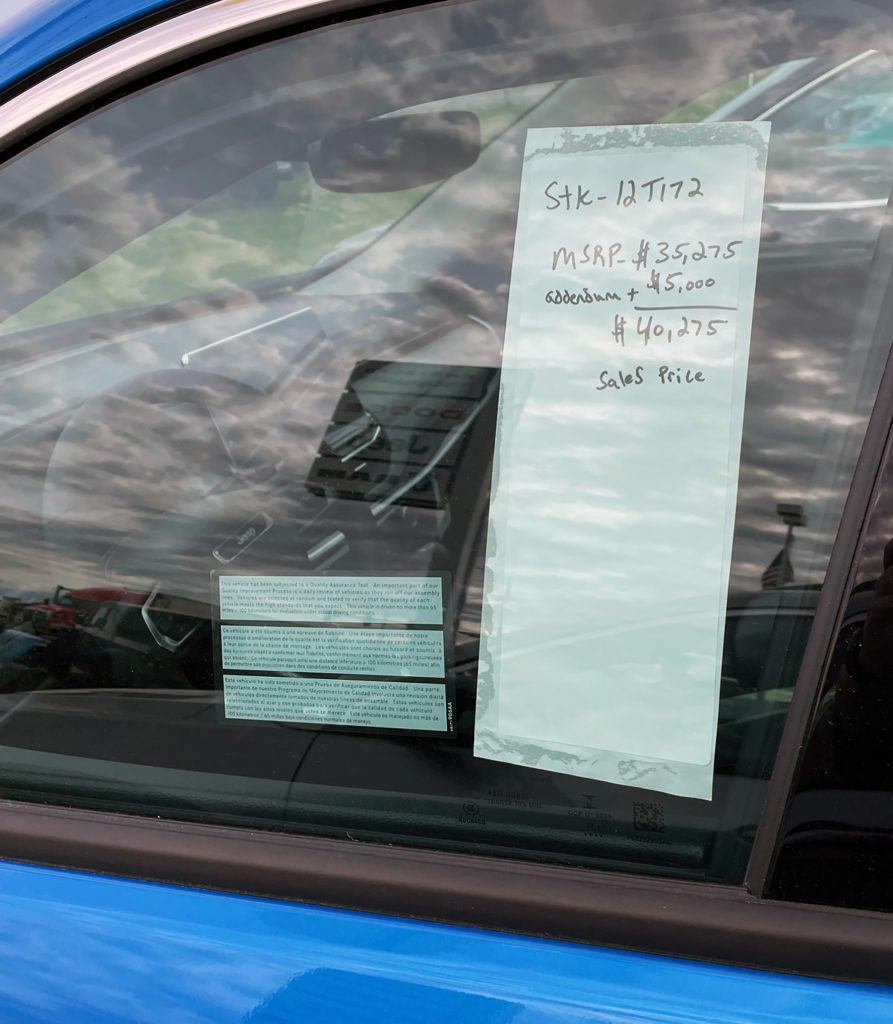 Stk-12T172
MSRP- $35,275
addendum + $5,000
$40,275
Sales Price
DODGE
Jeep
RAM
Jeep
This vehicle has been subjected to a Quality Assurance Test. An important part of our
Quality Improvement Process is a daily review of vehicles as they roll off our assembly
lines. Vehicles are selected at random and tested to verify that the quality of each
vehicle meets the high standards that you expect. This vehicle is driven no more than 65
miles / 100 kilometers for evaluation under actual driving conditions.
Ce véhicule a été soumis à une épreuve de fiabilité. Une étape importante de notre
processus d'amélioration de la qualité est la vérification quotidienne de certains véhicules
à leur sortie de la chaîne de montage. Les véhicules sont choisis au hasard et soumis à
des épreuves visant à confirmer leur fiabilité, conformément aux normes les plus rigoureuses
qui soient. Ce véhicule parcourt ainsi une distance inférieure à 100 kilomètres (65 miles) afin
de permettre son évaluation dans des conditions de conduite réelles.
Este vehículo ha sido sometido a una Prueba de Aseguramiento de Calidad. Una parte
importante de nuestro Programa de Mejoramiento de Calidad involucra una revisión diaria
de vehículos directamente tomados de nuestras líneas de ensamble. Estos vehículos son
seleccionados al azar y son probados para verificar que la calidad de cada vehículo
cumpla con los altos niveles que usted se merece. Este vehículo es manejado no más de
100 kilómetros / 65 miles bajo condiciones normales de manejo.